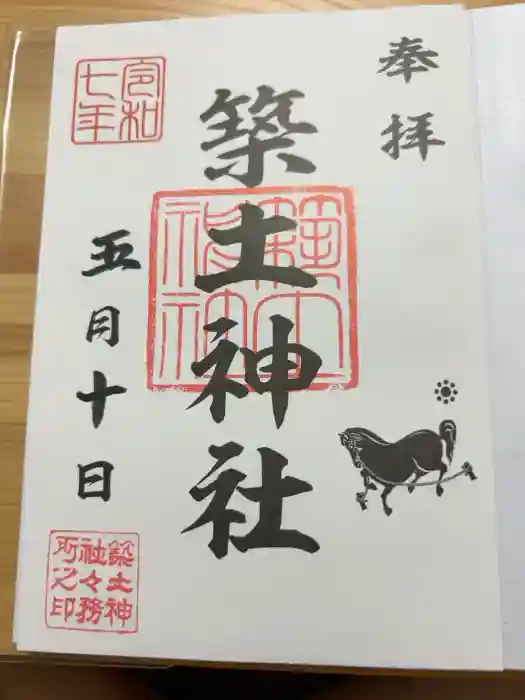 奉拝
築土神社
築土神社
令和七年
五月十日
築土神社々務所之印